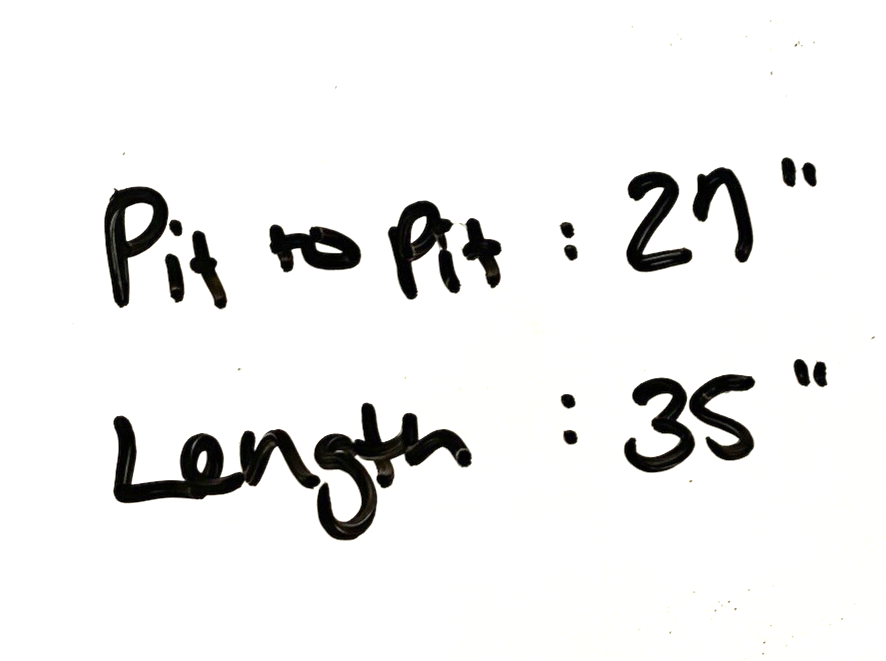 Pit to Pit : 27"
Length : 35"